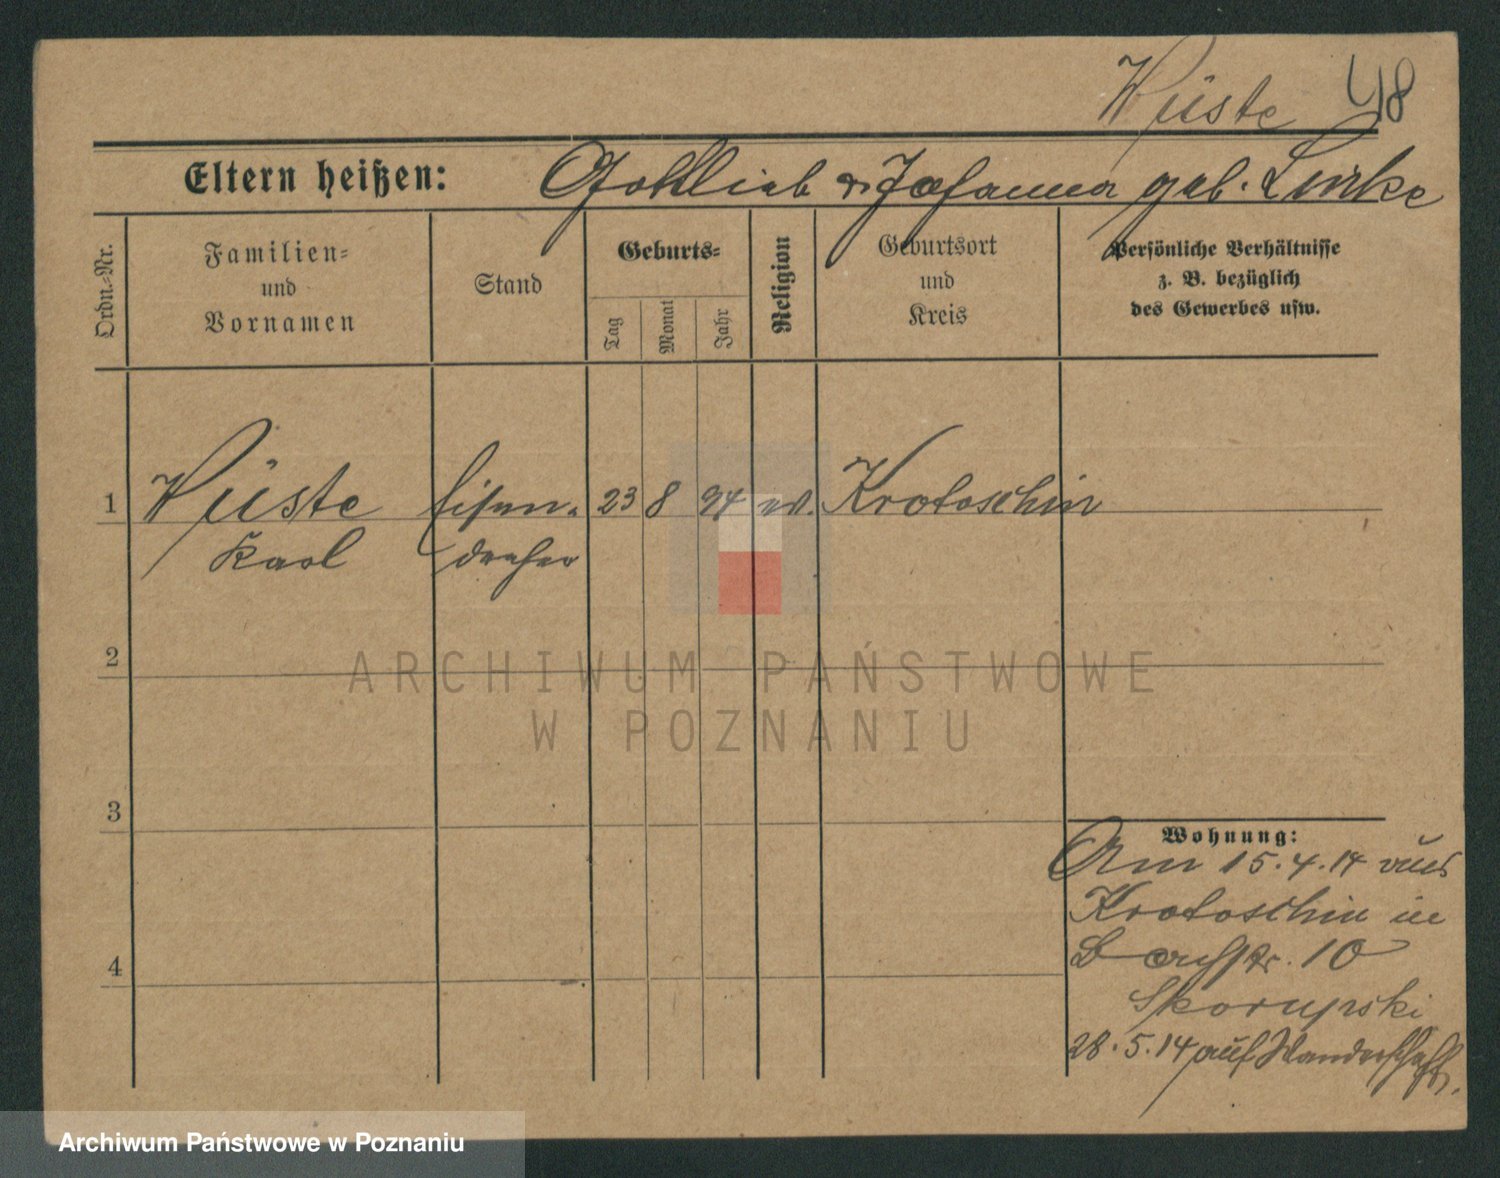 Wüste 48
Eltern heißen: Gottlieb & Johanna geb. Linke
Ordn.-Nr.
Familien-
und
Vornamen
Stand
Geburts-
Tag
Monat
Jahr
Religion
Geburtsort
und
Kreis
Persönliche Verhältnisse
z. B. bezüglich
des Gewerbes usw.
1 Wüste Eisen- 23 8 94 ev. Krotoschin
Karl dreher
2
3
4
Wohnung:
Am 15.4.14 aus
Krotoschin in
10
Skorupski
28.5.14 auf Wanderschaft.
ARCHIWUM PAŃSTWOWE
W POZNANIU
Archiwum Państwowe w Poznaniu